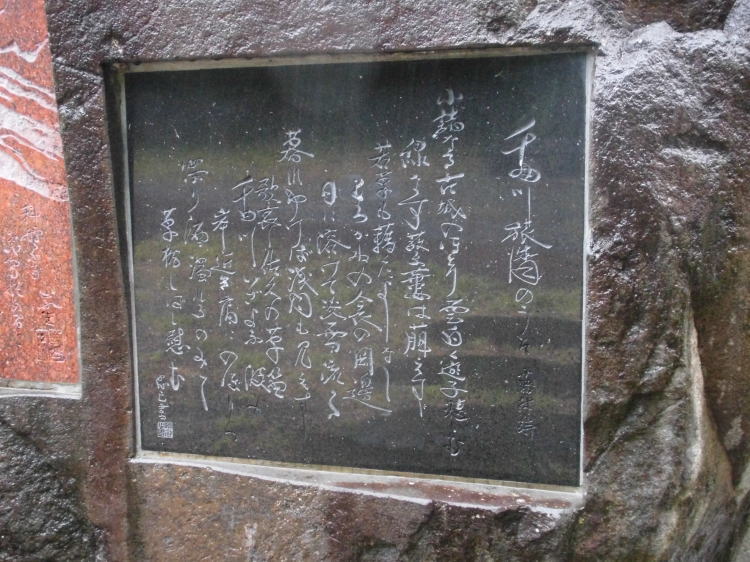 千曲川旅情のうた
小諸なる古城のほとり雲白く遊子悲しむ
緑なす蘩蔞は萌えず
若草も藉くによしなし
しろがねの衾の岡邊
日に溶けて淡雪流る
暮れ行けば浅間も見えず
歌哀し佐久の草笛
千曲川いざよふ波の
岸近き宿にのぼりつ
濁り酒濁れる飲みて
草枕しばし慰む